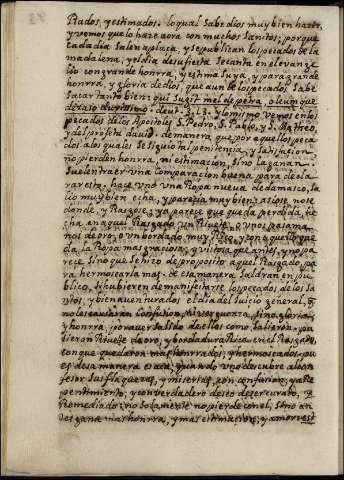 Piados, y estimados. lo qual sabe dios muy bien hazer,
y vemos que lo haze aora con muchos Santos; porque
cada dia sale a plaça, y se publican los pecados de la
madalena, y el dia de su fiesta se canta en el evange
lio con grande honrra, y estima suya, y para grande
honrra, y gloria de dios, que aun de los pecados sabe
sacar tanto bien: qui suxit mel de petra, oleum que
de saxo durissimo: deut. 32. y lo mismo vemos en los
pecados de los Apostoles S. Pedro, S. Pablo, y S. Matheo,
y del profeta david. de manera, que por aquellos peca
dos a los quales se siguio tal penitencia, y satisfacion
no pierden honrra, ni estimacion, sino la ganan.
Suelen traer una comparacion buena para decla
rar esto. haze uno una Ropa nueva de damasco, sa
lio muy bien echa, y parecia muy bien: asiose no se
donde, y Rasgose; ya parece que queda perdida, he
cha en aquel Rasgado un Ribete, o unos pasama
nos de oro, o un bordado muy Rico, y con aquello que
da la Ropa mas graciosa, y vistosa que antes, y no pa
rece sino que se hizo de proposito aquel Rasgado, pa
ra hermosearla mas. de esa manera saldran en pu
blico, si hubieren de manifestarse los pecados de los Sa
ntos, y bienaventurados el dia del Juicio general, q
no les causaran confusion, ni verguenza, sino gloria,
y honrra, por aver salido de ellos como salieron. pu
sieron Ribete de oro, y bordadura Rica en el Rasgado
con que quedaron mas honrrados, y hermoseados. pu
es de esa manera es acá, quando uno descubre al con
fesor sus flaquezas, y miserias, con confusion, y arre
pentimiento, y con verdadero deseo de ser curado, y
Remediado: no solamente no pierde con el, sino an
tes gana mas honrra, y mas estimacion, y amor est